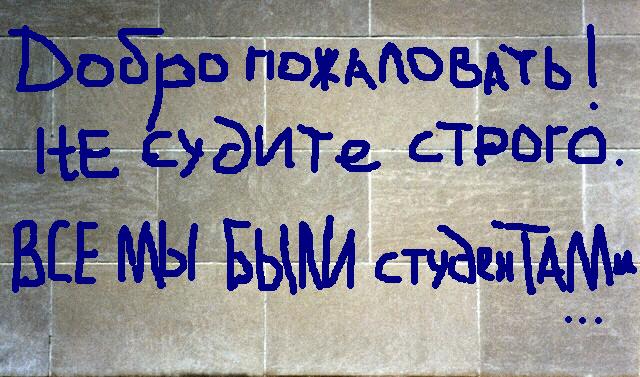 Добро пожаловать!
НЕ судите строго.
ВСЕ МЫ БЫЛИ студенТАМи
...